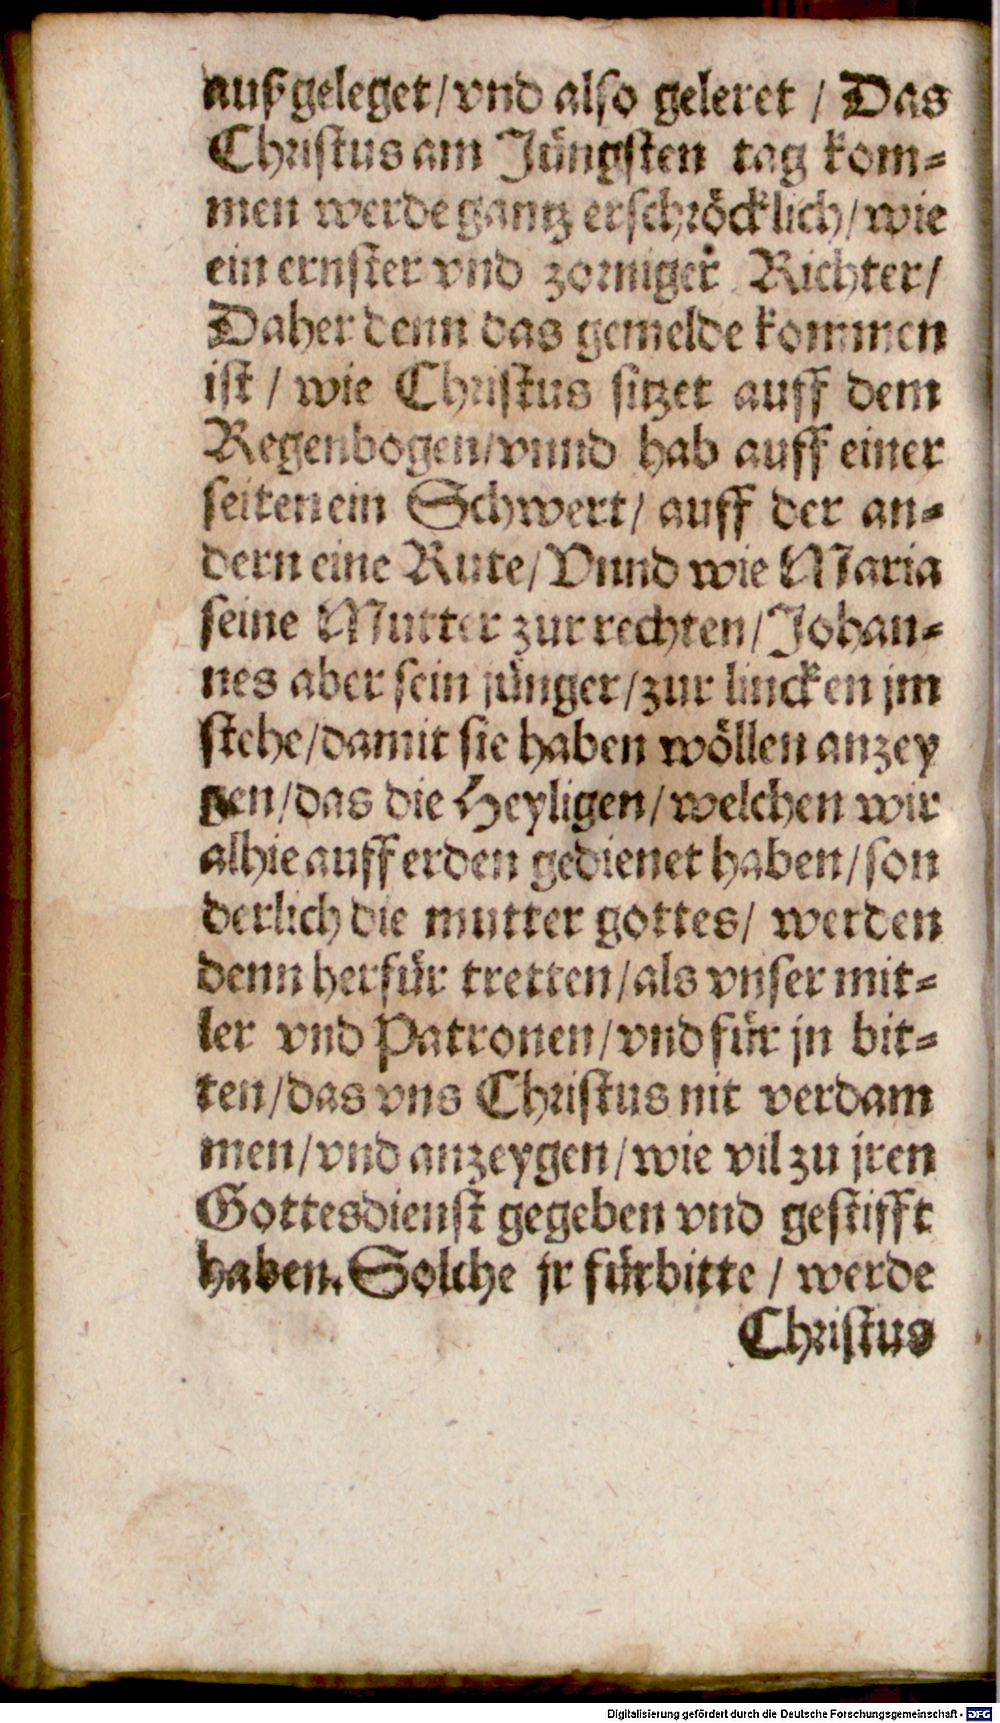 außgeleget/vnd also geleret / Das
Christus am Jüngsten tag kom-
men werde gantz erschröcklich/wie
ein ernster vnd zorniger Richter/
Daher denn das gemelde kommen
ist / wie Christus sitzet auff dem
Regenbogen/vnnd hab auff einer
seiten ein Schwert/ auff der an-
dern eine Rute/Vnnd wie Maria
seine Mutter zur rechten/Johan-
nes aber sein jünger/zur lincken jm
stehe/damit sie haben wöllen anzey
gen/das die Heyligen/welchen wir
alhie auff erden gedienet haben/son
derlich die mutter gottes/ werden
denn herfür tretten/als vnser mit-
ler vnd Patronen/vnd für jn bit-
ten/das vns Christus nit verdam
men/vnd anzeygen/wie vil zu jren
Gottesdienst gegeben vnd gestifft
haben. Solche jr fürbitte / werde
Christus
Digitalisierung gefördert durch die Deutsche Forschungsgemeinschaft - DFG